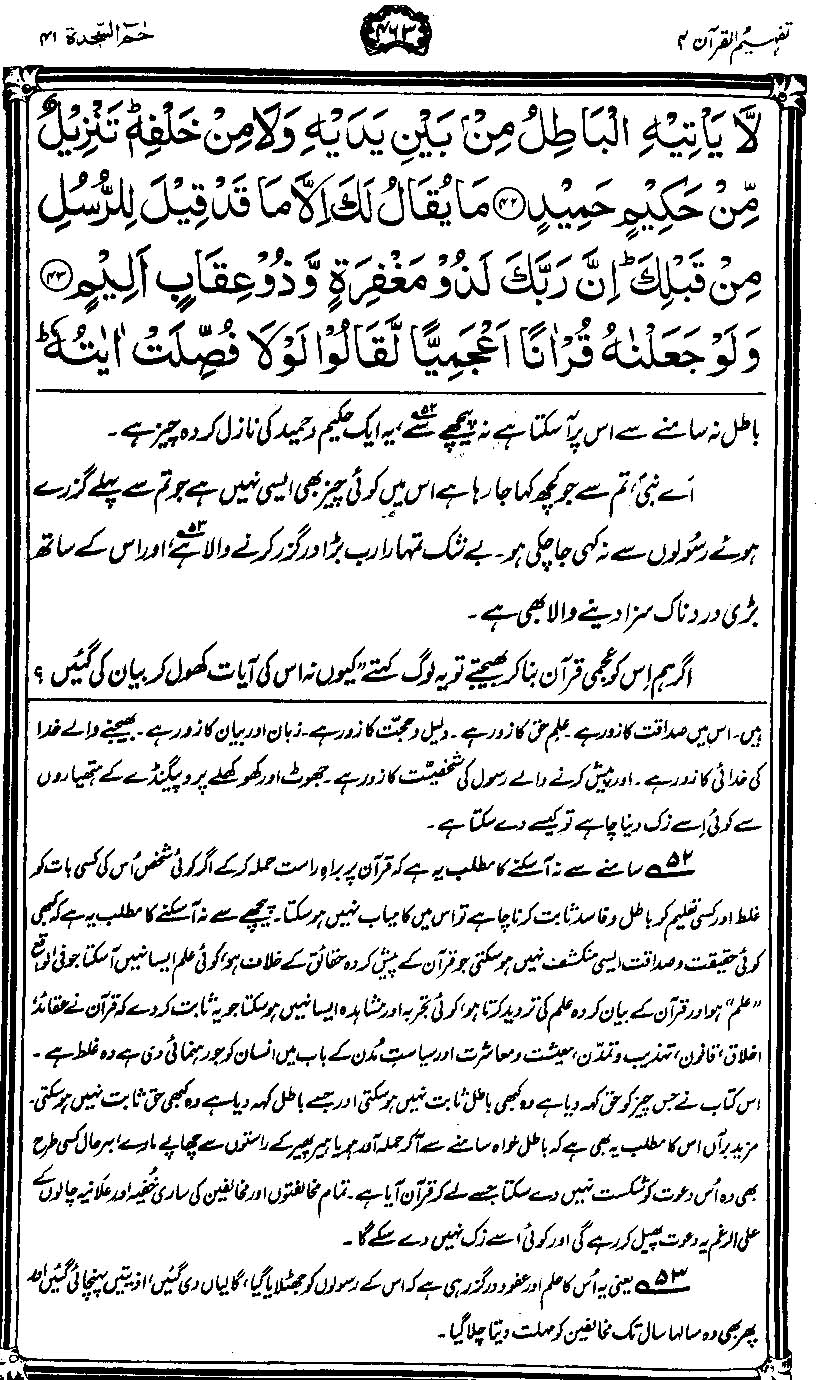 تفہیم القرآن ۴
۴۶۳
حٰمٓ السّجدۃ ۴۱
لَّا يَأْتِيْهِ الْبَاطِلُ مِنْۢ بَيْنِ يَدَيْهِ وَلَا مِنْ خَلْفِهٖ ؕ تَنْزِيْلٌ
مِّنْ حَكِيْمٍ حَمِيْدٍ ﴿۴۲﴾ مَا يُقَالُ لَكَ اِلَّا مَا قَدْ قِيْلَ لِلرُّسُلِ
مِنْ قَبْلِكَ ؕ اِنَّ رَبَّكَ لَذُوْ مَغْفِرَةٍ وَّذُوْ عِقَابٍ اَلِيْمٍ ﴿۴۳﴾
وَلَوْ جَعَلْنٰهُ قُرْاٰنًا اَعْجَمِيًّا لَّقَالُوْا لَوْلَا فُصِّلَتْ اٰيٰتُهٗ ؕ
باطل نہ سامنے سے اس پر آسکتا ہے نہ پیچھے سے۵۲، یہ ایک حکیم و حمید کی نازل کردہ چیز ہے۔
اَے نبیؐ، تم سے جو کچھ کہا جا رہا ہے اس میں کوئی چیز بھی ایسی نہیں ہے جو تم سے پہلے گزرے
ہوئے رسُولوں سے نہ کہی جاچکی ہو۔ بے شک تمہارا رب بڑا درگزر کرنے والا ہے۵۳، اور اس کے ساتھ
بڑی دردناک سزا دینے والا بھی ہے۔
اگر ہم اِس کو عجمی قرآن بنا کر بھیجتے تو یہ لوگ کہتے ”کیوں نہ اس کی آیات کھول کر بیان کی گئیں ؟
ہیں۔ اس میں صداقت کا زور ہے۔ علمِ حق کا زور ہے۔ دلیل و حجت کا زور ہے۔ زبان اور بیان کا زور ہے۔ بھیجنے والے خدا
کی خدائی کا زور ہے۔ اور پیش کرنے والے رسول کی شخصیّت کا زور ہے۔ جھوٹ اور کھوکھلے پروپیگنڈے کے ہتھیاروں
سے کوئی اِسے زک دینا چاہے تو کیسے دے سکتا ہے۔
۵۲ سامنے سے نہ آسکنے کا مطلب یہ ہے کہ قرآن پر براہِ راست حملہ کرکے اگر کوئی شخص اُس کی کسی بات کو
غلط اور کسی تعلیم کو باطل و فاسد ثابت کرنا چاہے تو اس میں کامیاب نہیں ہوسکتا۔ پیچھے سے نہ آسکنے کا مطلب یہ ہے کہ کبھی
کوئی حقیقت و صداقت ایسی منکشف نہیں ہوسکتی جو قرآن کے پیش کردہ حقائق کے خلاف ہو، کوئی علم ایسا نہیں آسکتا جو فی الواقع
”علم“ ہو اور قرآن کے بیان کردہ علم کی تردید کرتا ہو، کوئی تجربہ اور مشاہدہ ایسا نہیں ہوسکتا جو یہ ثابت کردے کہ قرآن نے عقائد،
اخلاق، قانون، تہذیب و تمدّن، معیشت و معاشرت اور سیاستِ مُدن کے باب میں انسان کو جو رہنمائی دی ہے وہ غلط ہے۔
اس کتاب نے جس چیز کو حق کہہ دیا ہے وہ کبھی باطل ثابت نہیں ہوسکتی اور جسے باطل کہہ دیا ہے وہ کبھی حق ثابت نہیں ہوسکتی۔
مزید برآں اس کا مطلب یہ بھی ہے کہ باطل خواہ سامنے سے آکر حملہ آور ہو یا ہیر پھیر کے راستوں سے چھاپے مارے، بہرحال کسی طرح
بھی وہ اُس دعوت کو شکست نہیں دے سکتا جسے لے کر قرآن آیا ہے۔ تمام مخالفتوں اور مخالفین کی ساری خُفیہ اور علانیہ چالوں کے
علی الرغم یہ دعوت پھیل کر رہے گی اور کوئی اسے زک نہیں دے سکے گا۔
۵۳ یعنی یہ اُس کا حلم اور عفو و درگزر ہی ہے کہ اس کے رسولوں کو جھٹلایا گیا، گالیاں دی گئیں، اذیتیں پہنچائی گئیں اور
پھر بھی وہ سالہا سال تک مخالفین کو مہلت دیتا چلا گیا۔